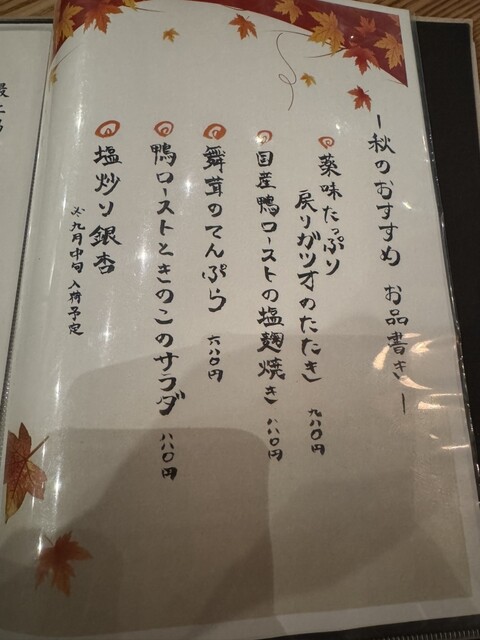 ー秋のおすすめ お品書きー
薬味たっぷり
戻りガツオのたたき 九八〇円
国産鴨ローストの塩麹焼き 八八〇円
舞茸のてんぷら 六八〇円
鴨ローストときのこのサラダ 八八〇円
塩炒り銀杏
※九月中旬入荷予定